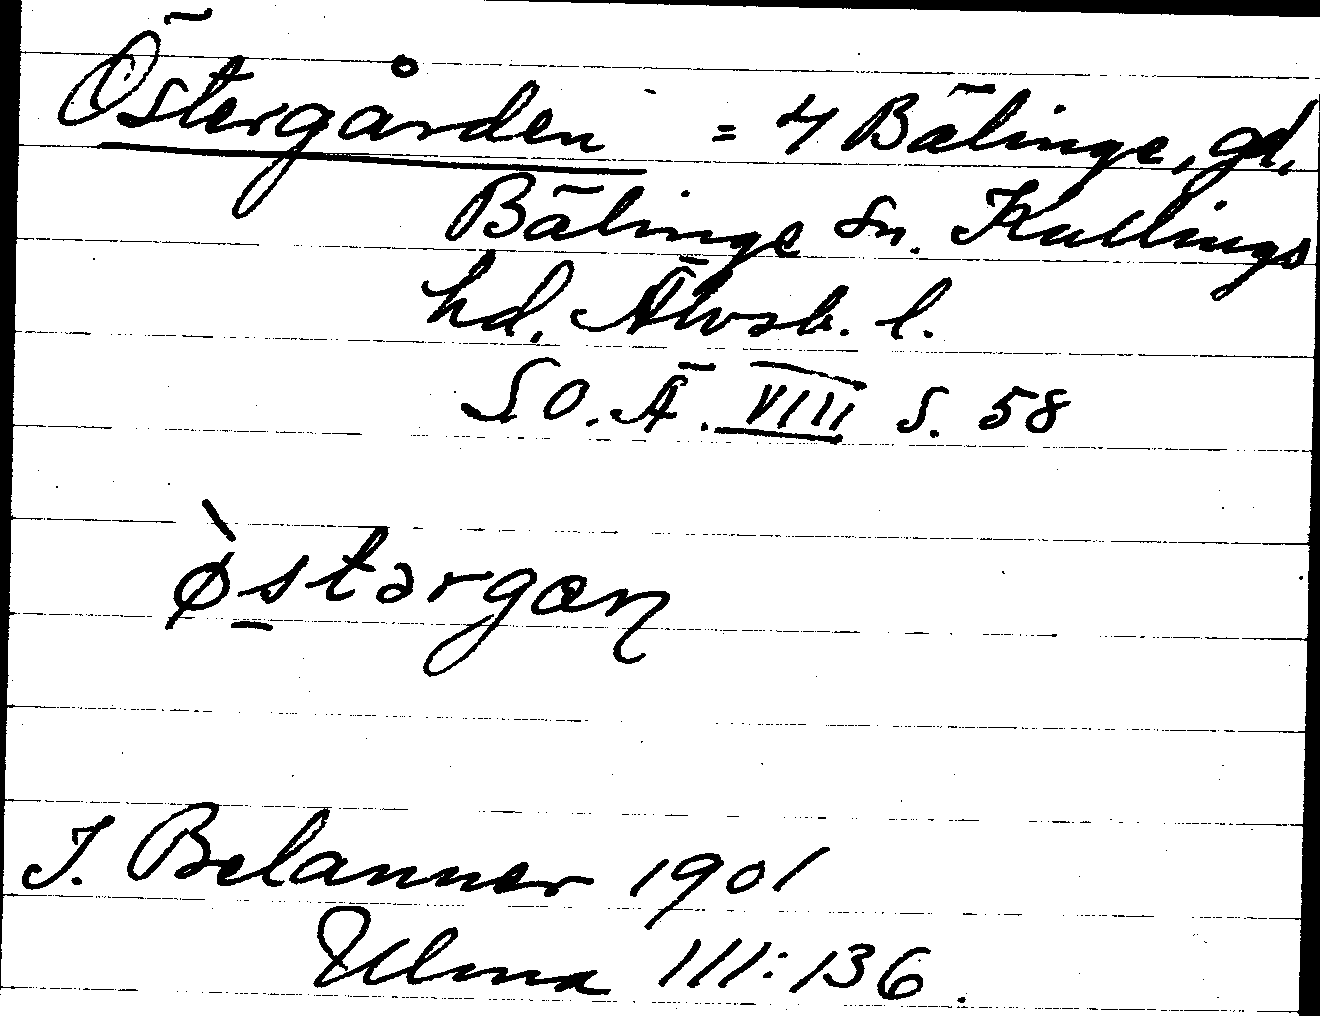 Östergården = 4 Bälinge, gd,
Bälinge sn. Kullings
hd. Älvsb. l.
SO. Ä. VIII s. 58
ø̀stərgɑn
J. Belanner 1901
Ulma 111:136.